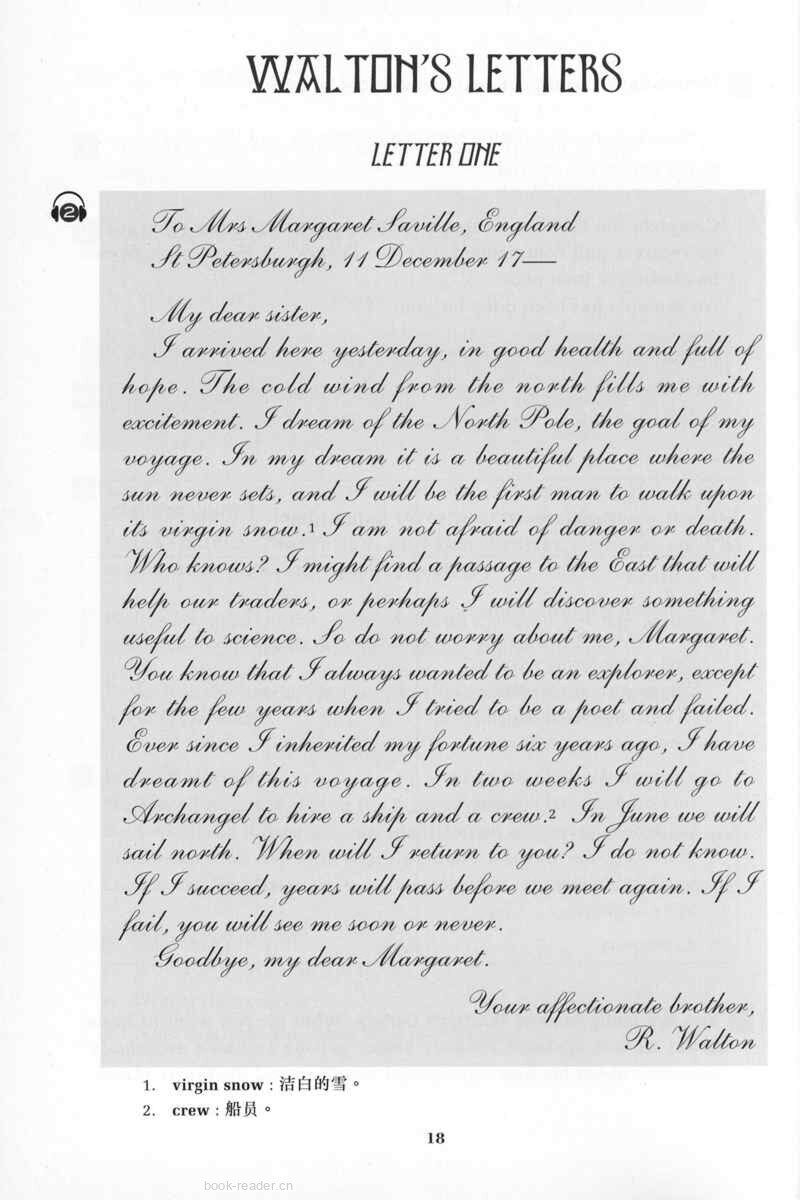 WALTON'S LETTERS
LETTER ONE
2
To Mrs Margaret Saville, England
St Petersburgh, 11 December 17—
My dear sister,
I arrived here yesterday, in good health and full of
hope. The cold wind from the north fills me with
excitement. I dream of the North Pole, the goal of my
voyage. In my dream it is a beautiful place where the
sun never sets, and I will be the first man to walk upon
its virgin snow.1 I am not afraid of danger or death.
Who knows? I might find a passage to the East that will
help our traders, or perhaps I will discover something
useful to science. So do not worry about me, Margaret.
You know that I always wanted to be an explorer, except
for the few years when I tried to be a poet and failed.
Ever since I inherited my fortune six years ago, I have
dreamt of this voyage. In two weeks I will go to
Archangel to hire a ship and a crew.2 In June we will
sail north. When will I return to you? I do not know.
If I succeed, years will pass before we meet again. If I
fail, you will see me soon or never.
Goodbye, my dear Margaret.
Your affectionate brother,
R. Walton
1. virgin snow : 洁白的雪。
2. crew : 船员。
18
book-reader.cn